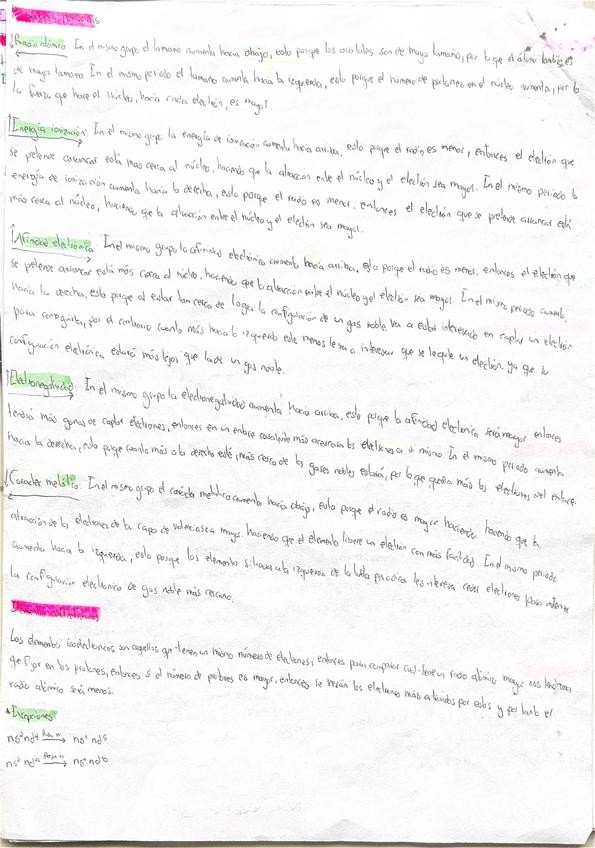 Radio atómico: En el mismo grupo el tamaño aumenta hacia abajo, esto porque los orbitales son de mayor tamaño, por lo que el átomo también es
de mayor tamaño. En el mismo periodo el tamaño aumenta hacia la izquierda, esto porque el número de protones en el núcleo aumenta, por lo
la fuerza que hace el núcleo, hacia cada electrón, es mayor.
Energía ionización: En el mismo grupo la energía de ionización aumenta hacia arriba, esto porque el radio es menor, entonces el electrón que
se pretende arrancar está más cerca al núcleo, haciendo que la atracción entre el núcleo y el electrón sea mayor. En el mismo periodo la
energía de ionización aumenta hacia la derecha, esto porque el radio es menor, entonces el electrón que se pretende arrancar está
más cerca al núcleo, haciendo que la atracción entre el núcleo y el electrón sea mayor.
Afinidad electrónica: En el mismo grupo la afinidad electrónica aumenta hacia arriba, esto porque el radio es menor, entonces el electrón que
se pretende arrancar está más cerca al núcleo, haciendo que la atracción entre el núcleo y el electrón sea mayor. En el mismo periodo aumenta
hacia la derecha, esto porque al estar tan cerca de lograr la configuración de un gas noble va a estar interesado en captar un electrón
para conseguirla, por el contrario cuanto más hacia la izquierda este menos le va a interesar que se le quite un electrón, ya que su
configuración eletrónica estará más lejos que la de un gas noble.
Electronegatividad: En el mismo grupo la electronegatividad aumenta hacia arriba, esto porque la afinidad electronica será mayor entonces
tendrá más ganas de captar electrones, entonces en un enlace covalente más acercara los electrones a si mismo. En el mismo periodo aumenta
hacia la derecha, esto porque cuanto más a la derecha esté, más cerca de los gases nobles estará, por lo que querrá más los electrones del enlace.
Carácter metálico: En el mismo grupo el carácter metálico aumenta hacia abajo, esto porque el radio es mayor haciendo haciendo que la
atracción de los electrones de la capa de valencia sea mayor, haciendo que el elemento libere un electron con más facilidad. En el mismo periodo
aumenta hacia la izquierda, esto porque los elementos situados a la izquierda de la tabla periodica les interesa ceder electrones para obtener
la configuración electronica de gas noble más cercano.
Los elementos isoelectronicos son aquellos que tienen un mismo número de electrones, entonces para comparar cual tiene un radio atómico mayor nos tendremos
que fijar en los protones, entonces si el número de protones es mayor, entonces se verán los electrones más atraidos por estos y por tanto el
radio atómico será menor.
*Excepciones
ns² nd⁴ Pasa a ns¹ nd⁵
ns² nd⁹ Pasa a ns¹ nd¹⁰